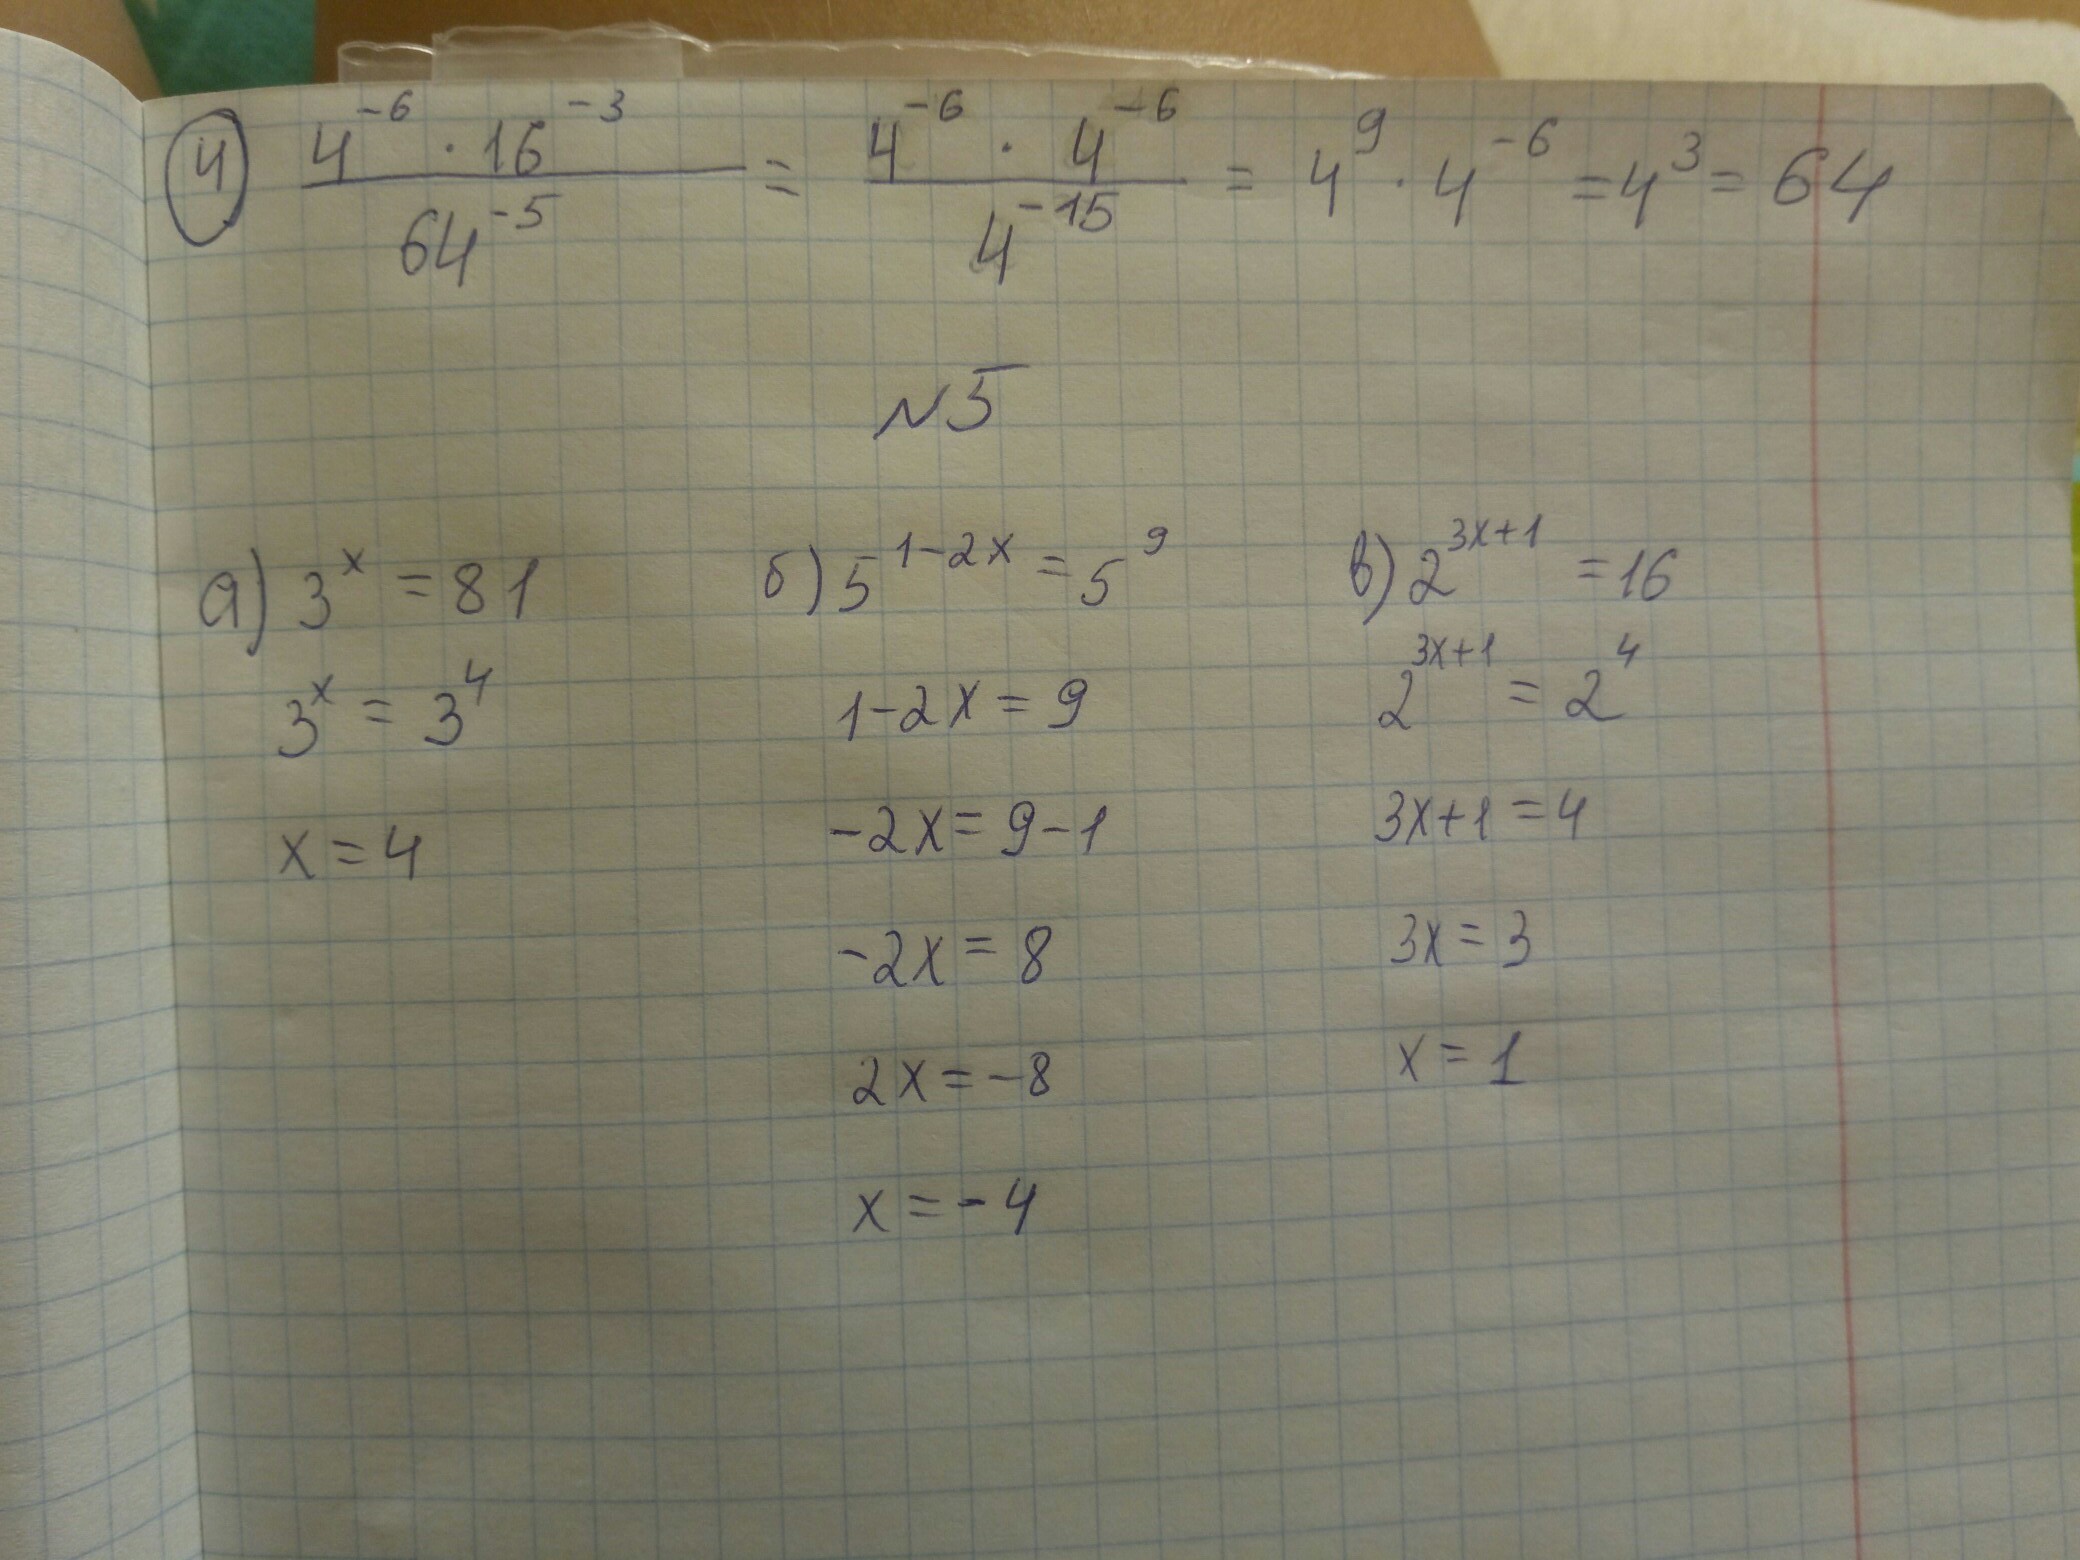 ④ (4^{-6} · 16^{-3}) / 64^{-5} = (4^{-6} · 4^{-6}) / 4^{-15} = 4^9 · 4^{-6} = 4^3 = 64
№5
а) 3^x = 81
3^x = 3^4
x = 4
б) 5^{1-2x} = 5^9
1-2x = 9
-2x = 9-1
-2x = 8
2x = -8
x = -4
в) 2^{3x+1} = 16
2^{3x+1} = 2^4
3x+1 = 4
3x = 3
x = 1